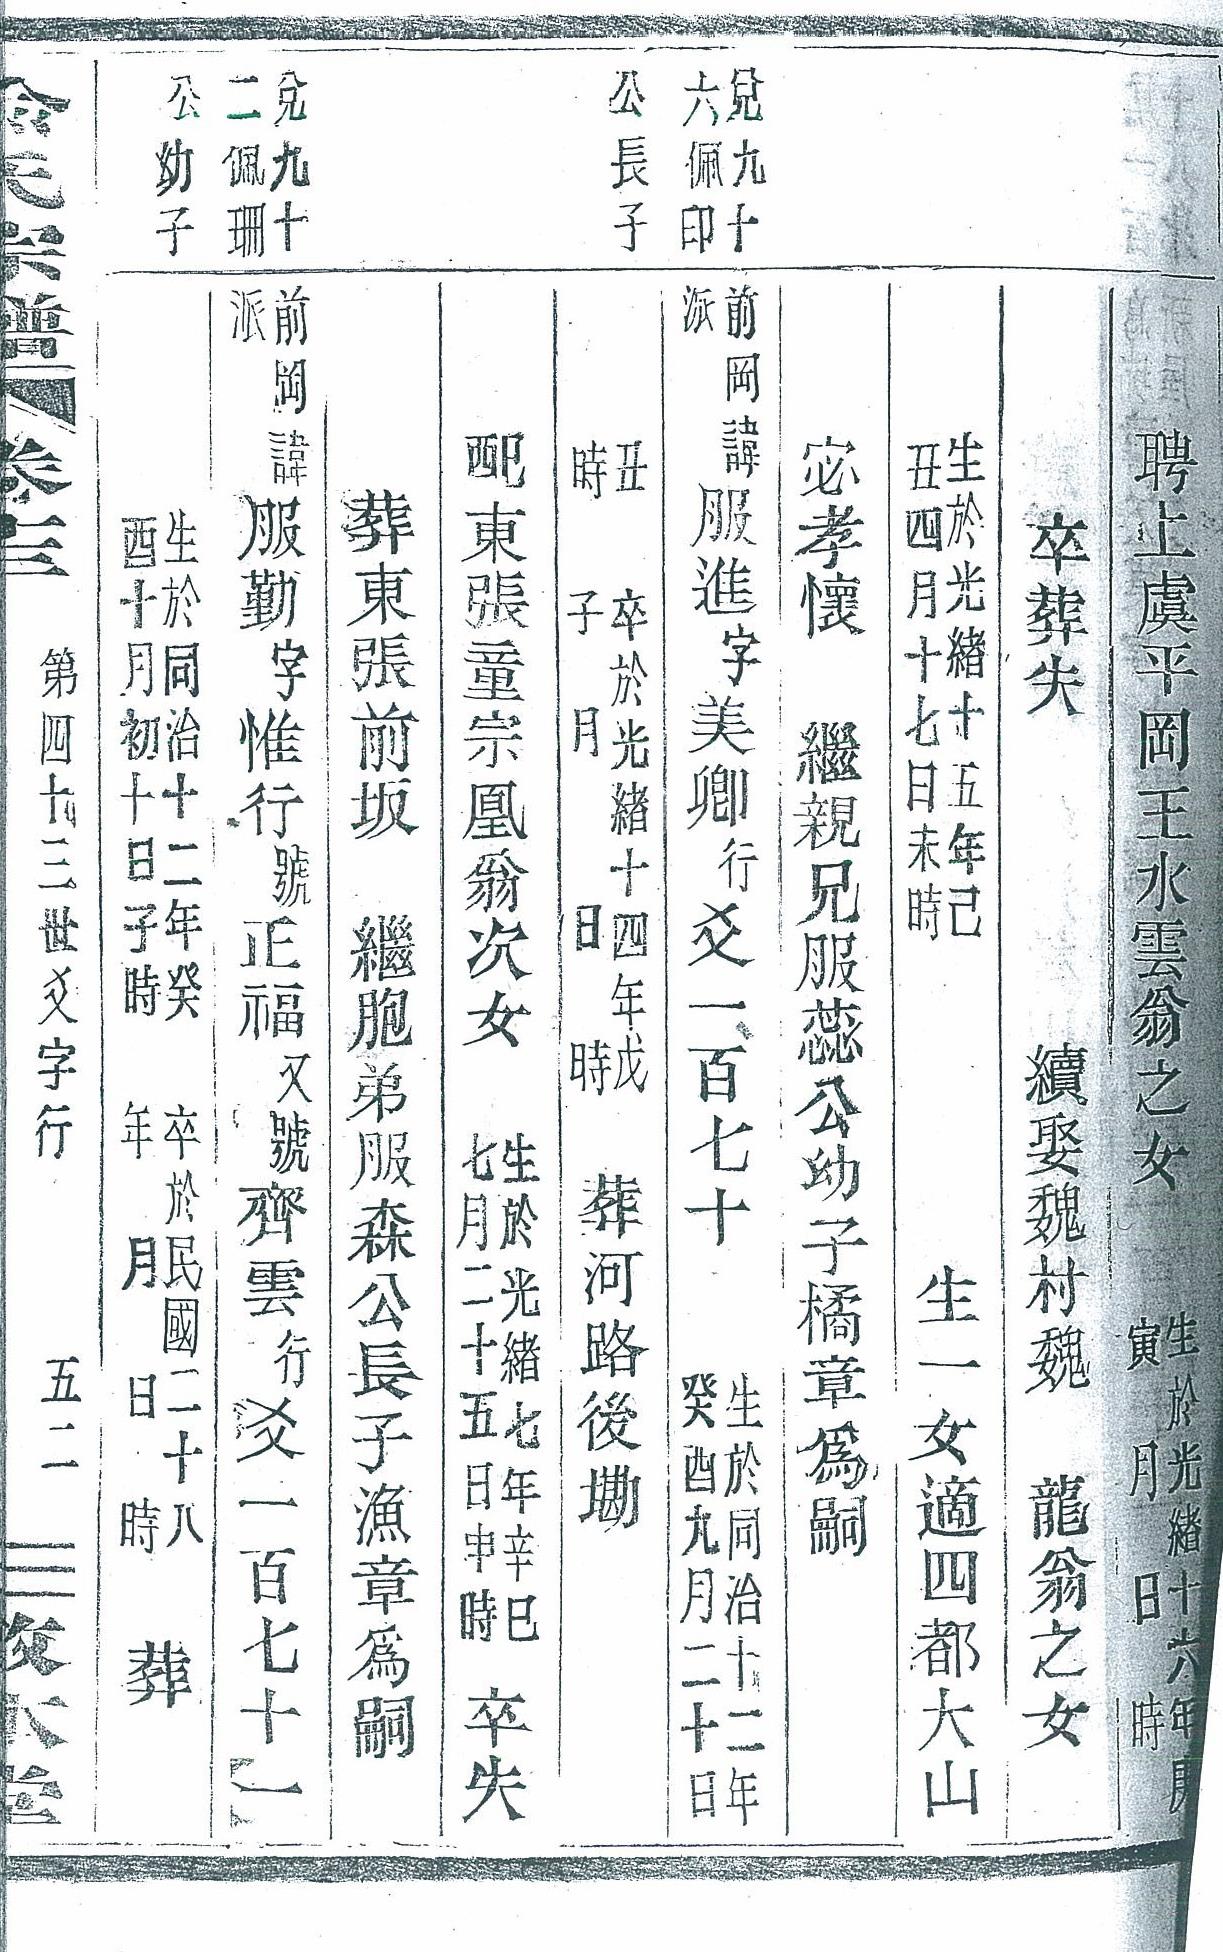 聘上虞平岡王水雲翁之女 生於光緒十六年庚
寅 月 日 時
卒葬失 續娶魏村魏 龍翁之女
生於光緒十五年己
丑四月十七日未時 生一女適四都大山
宓孝懷 繼親兄服蕊公幼子橘章爲嗣
兌九十
六佩印
公長子
前岡
派
諱服進字美卿行爻一百七十 生於同治十二年
癸酉九月二十日
丑
時 卒於光緒十四年戊
子 月 日 時 葬河路後墈
配東張童宗凰翁次女 生於光緒七年辛巳
七月二十五日申時 卒失
葬東張前坂 繼胞弟服森公長子漁章爲嗣
兌九十
二佩珊
公幼子
前岡
派
諱服勤字惟行號正福又號齊雲行爻一百七十一
生於同治十二年癸
酉十月初十日子時 卒於民國二十八
年 月 日 時 葬
氏宗譜 卷三 第四十三世爻字行 五二 本堂